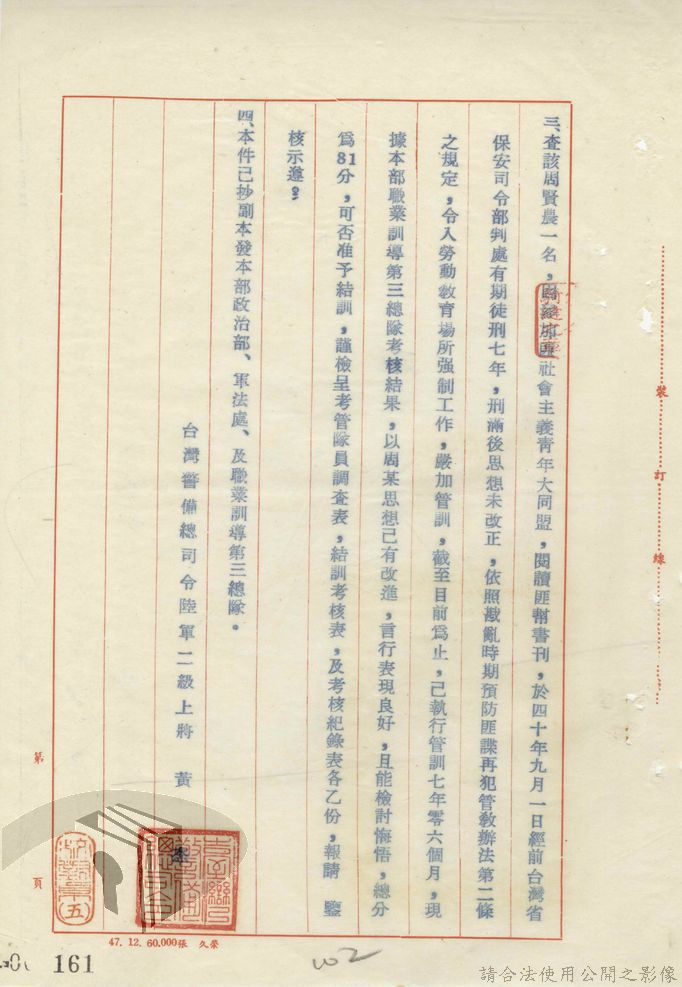 三、查該周賢農一名，因參加匪社會主義青年大同盟，閱讀匪幫書刊，於四十年九月一日經前台灣省
保安司令部判處有期徒刑七年，刑滿後思想未改正，依照戡亂時期預防匪諜再犯管教辦法第二條
之規定，令入勞動教育場所强制工作，嚴加管訓，截至目前爲止，已執行管訓七年零六個月，現
據本部職業訓導第三總隊考核結果，以周某思想已有改進，言行表現良好，且能檢討悔悟，總分
爲81分，可否准予結訓，謹檢呈考管隊員調查表，結訓考核表，及考核紀錄表各乙份，報請　鑒
核示遵。
四、本件已抄副本發本部政治部、軍法處、及職業訓導第三總隊。
台灣警備總司令陸軍二級上將　黃
裝
訂
線
第
頁
五
47. 12. 60.000張 久榮
161
102
請合法使用公開之影像